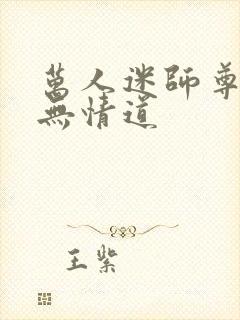 萬人迷師尊
無情道
王紫